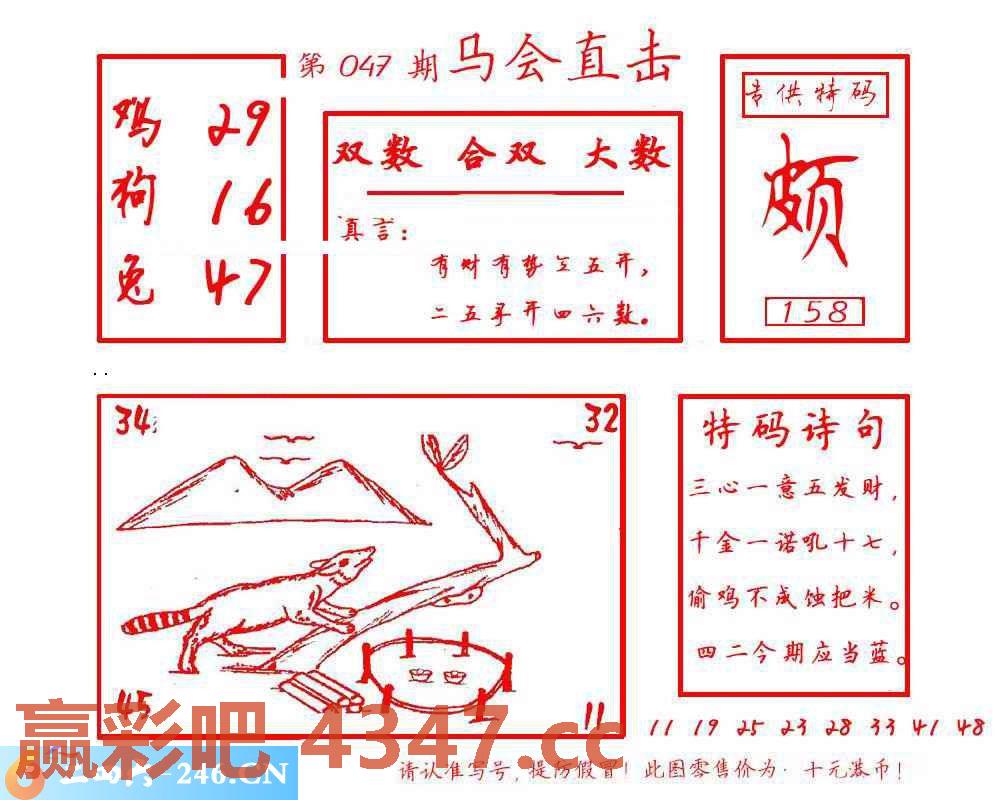 第 047 期 马会直击
鸡 29
狗 16
兔 47
双数 合双 大数
真言:
有财有势三五开,
二五寻开四六数。
专供特码
颇
158
34
32
45
11
特码诗句
三心一意五发财,
千金一诺吼十七,
偷鸡不成蚀把米。
四二今期应当蓝。
11 19 25 23 28 33 41 48
赢彩吧 4347.cc
246.CN
请认准写号,提防假冒!此图零售价为·十元港币!